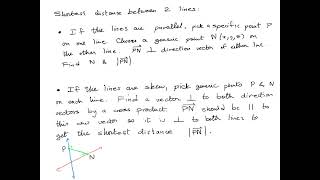 Shortest distance between 2 lines:
• If the lines are parallel, pick a specific point P
on one line. Choose a generic point N (x,y,z) on
the other line. PN ⊥ direction vector of either line.
Find N & |PN|.
• If the lines are skew, pick generic points P & N
on each line. Find a vector ⊥ to both direction
vectors by a cross product. PN should be || to
this new vector so it is ⊥ to both lines to
get the shortest distance |PN|.
P
N